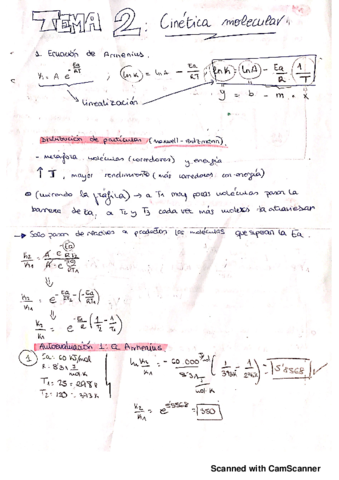 TEMA 2: Cinética molecular.
1. Ecuación de Arrhenius.
K = A e^(-Ea/RT) ; ln K = ln A - Ea/RT ; ln K = ln A - Ea/R · (1/T)
linealización
y = b - m · x
Distribución de partículas (maxwell-boltzmann)
- metáfora moléculas (corredores) y energía
↑ T, mayor rendimiento (más corredores con energía)
(mirando la gráfica) → a T1 muy pocas moléculas pasan la
barrera de Ea, a T2 y T3 cada vez más moléc la atraviesan
→ Solo pasan de reactivos a productos las moléculas que superan la Ea.
K2/K1 = A e^(-Ea/RT2) / A e^(-Ea/RT1)
⇓
K2/K1 = e^(-Ea/RT2 - (-Ea/RT1))
⇓
K2/K1 = e^(-Ea/R (1/T2 - 1/T1))
Autoevaluación 1: Arrhenius
1
Ea: 60 KJ/mol
R = 8'31 J/mol·K
T1 = 25 = 298 K
T2 = 120 = 393 K
ln K2/K1 = - 60 000 / 8'31 (1/393K - 1/298K) = 5'8568
K2/K1 = e^5'8568 = 350
Scanned with CamScanner